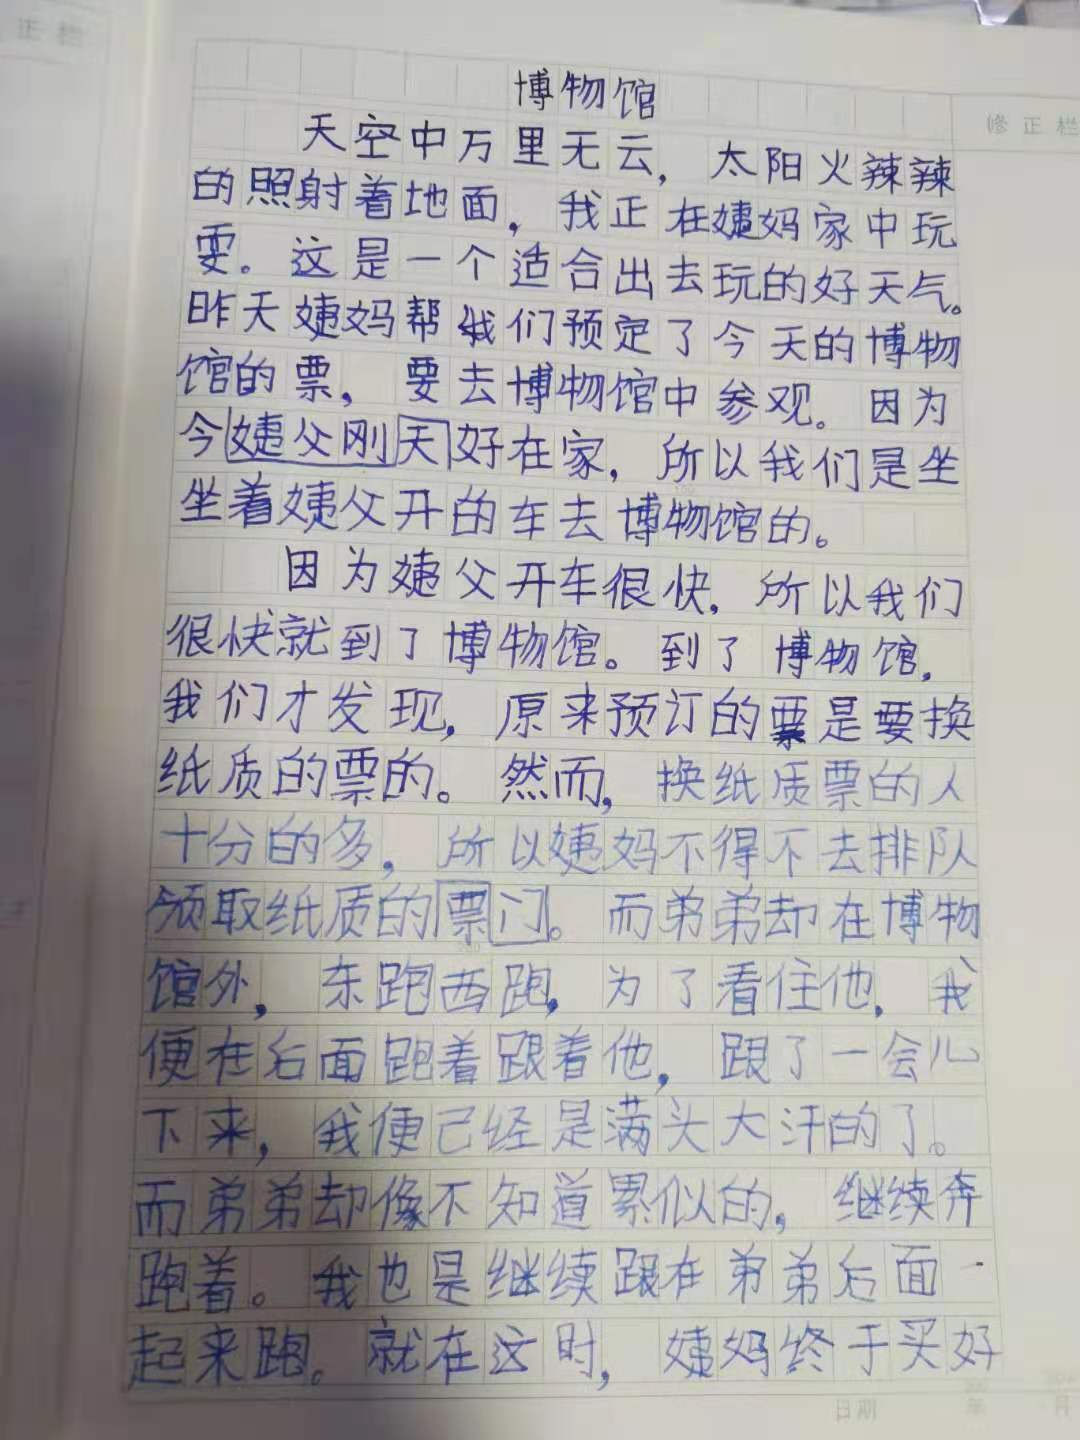 正栏
修正栏
博物馆
天空中万里无云，太阳火辣辣
的照射着地面，我正在姨妈家中玩
耍。这是一个适合出去玩的好天气。
昨天姨妈帮我们预定了今天的博物
馆的票，要去博物馆中参观。因为
今姨父刚天好在家，所以我们是坐
坐着姨父开的车去博物馆的。
因为姨父开车很快，所以我们
很快就到了博物馆。到了博物馆，
我们才发现，原来预订的票是要换
纸质的票的。然而，换纸质票的人
十分的多，所以姨妈不得不去排队
领取纸质的票门。而弟弟却在博物
馆外，东跑西跑，为了看住他，我
便在后面跑着跟着他，跟了一会儿
下来，我便已经是满头大汗的了。
而弟弟却像不知道累似的，继续奔
跑着。我也是继续跟在弟弟后面一
起来跑。就在这时，姨妈终于买好
日期 年 月